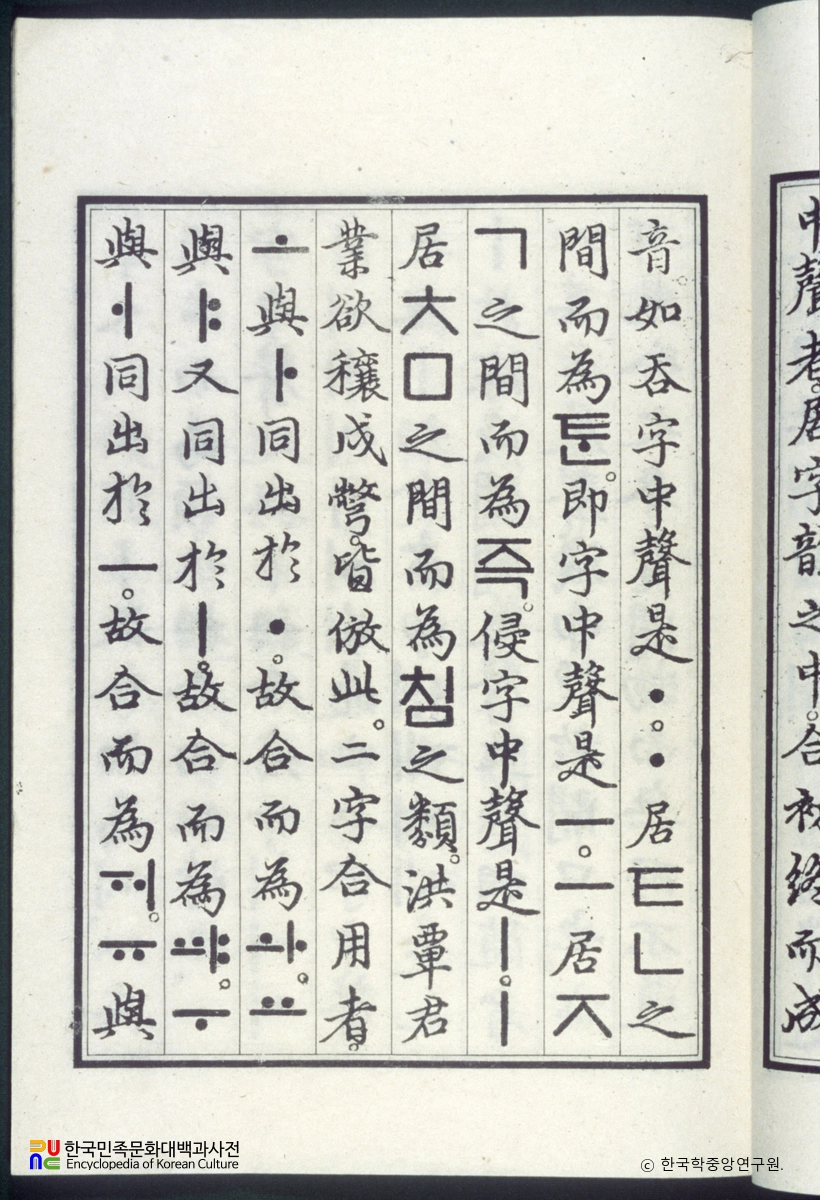 中聲者。居字韻之中。合初終而成
音。如吞字中聲是ㆍ。ㆍ居ㅌㄴ之
間而為ᄐᆞᆫ。即字中聲是ㅡ。ㅡ居ㅈ
ㄱ之間而為즉。侵字中聲是ㅣ。ㅣ
居ㅊㅁ之間而為침之類。洪覃君
業欲穰戌彆。皆倣此。二字合用者。
ㅗ與ㅏ同出於ㆍ。故合而為ㅘ。ㅛ
與ㅑ又同出於ㅣ。故合而為ㆇ。ㅜ
與ㅓ同出於ㅡ。故合而為ㅝ。ㅠ與
한국민족문화대백과사전
Encyclopedia of Korean Culture
© 한국학중앙연구원.